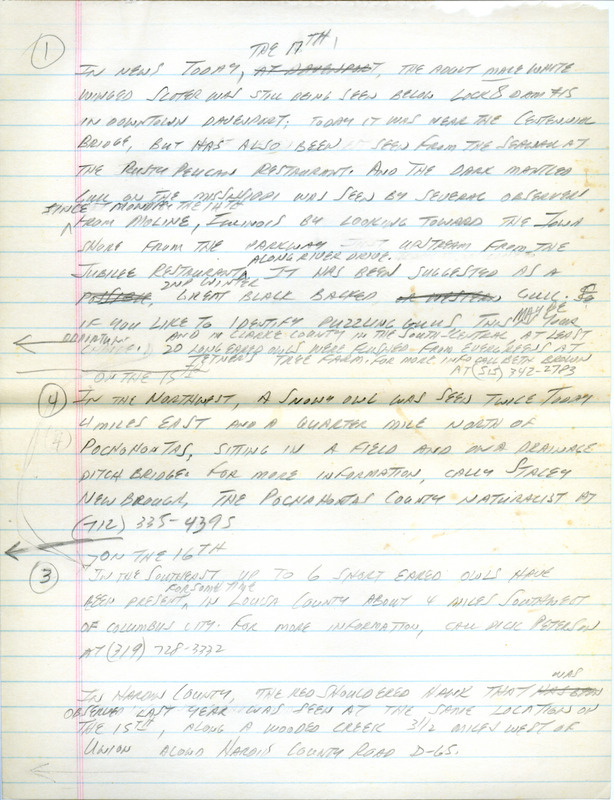 ① THE 17TH,
IN NEWS TODAY, AT DAVENPORT, THE ADULT MALE WHITE
WINGED SCOTER WAS STILL BEING SEEN BELOW LOCK & DAM #15
IN DOWNTOWN DAVENPORT; TODAY IT WAS NEAR THE CENTENNIAL
BRIDGE, BUT HAS ALSO BEEN SEEN FROM THE SEAWALL AT
THE RUSTY PELICAN RESTAURANT. AND THE DARK MANTLED
GULL ON THE MISSISSIPPI WAS SEEN BY SEVERAL OBSERVERS
SINCE MONDAY THE 14TH
FROM MOLINE, ILLINOIS BY LOOKING TOWARD THE IOWA
SHORE FROM THE PARKWAY UPSTREAM FROM THE
ALONG RIVER DRIVE.
JUBILEE RESTAURANT. IT HAS BEEN SUGGESTED AS A
2ND WINTER
GREAT BLACK BACKED OR WESTERN GULL. SO
IF YOU LIKE TO IDENTIFY PUZZLING GULLS THIS MAY BE YOUR
AND IN CLARKE COUNTY IN THE SOUTH-CENTRAL AT LEAST
20 LONG EARED OWLS WERE FLUSHED FROM EVERGREENS AT
TREE FARM. FOR MORE INFO CALL BETH BROWN
ON THE 15TH AT (515) 342-2783
④ IN THE NORTHWEST, A SNOWY OWL WAS SEEN TWICE TODAY
4 MILES EAST AND A QUARTER MILE NORTH OF
(4) POCHOHONTAS, SITTING IN A FIELD AND ON A DRAINAGE
DITCH BRIDGE. FOR MORE INFORMATION, CALL STACEY
NEWBROUGH, THE POCHAHONTAS COUNTY NATURALIST AT
(712) 335-4395
ON THE 16TH
③ IN THE SOUTHEAST UP TO 6 SHORT EARED OWLS HAVE
FOR SOME TIME
BEEN PRESENT, IN LOUISA COUNTY ABOUT 4 MILES SOUTHWEST
OF COLUMBUS CITY. FOR MORE INFORMATION, CALL DICK PETERSON
AT (319) 728-3332
IN HARDIN COUNTY, THE RED SHOULDERED HAWK THAT HAS BEEN WAS
OBSERVED LAST YEAR WAS SEEN AT THE SAME LOCATION ON
THE 15TH, ALONG A WOODED CREEK 3 1/2 MILES WEST OF
UNION ALONG HARDIN COUNTY ROAD D-65.